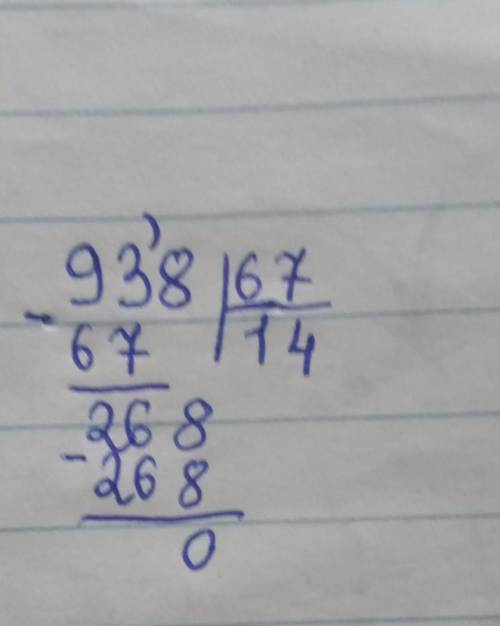 93'8 | 67
- 67 | 14
268
- 268
0